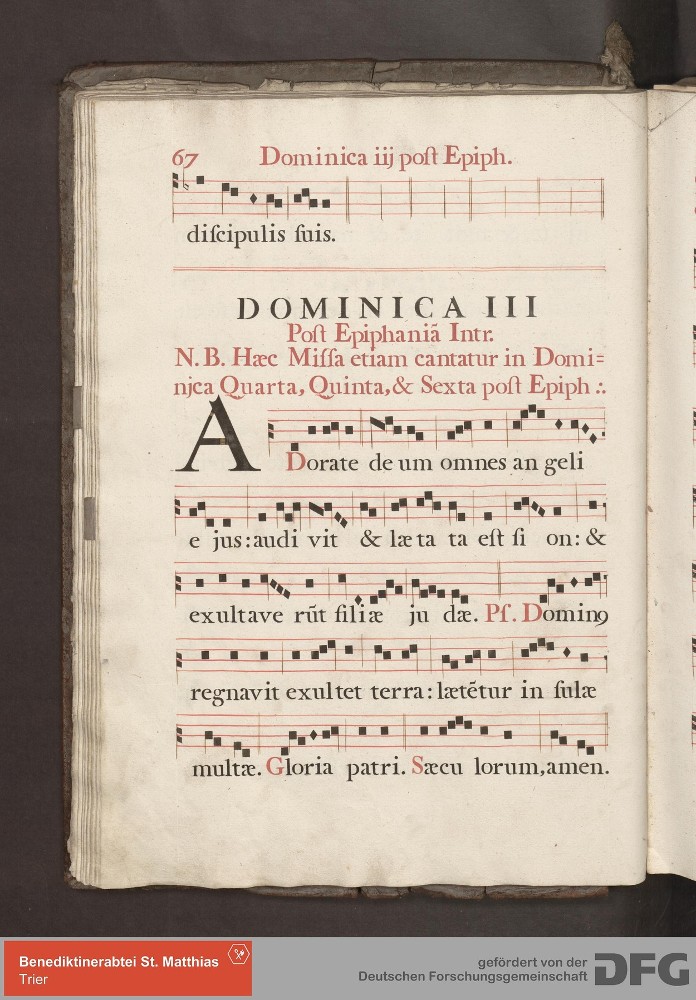 67 Dominica iij poſt Epiph.
diſcipulis ſuis.
DOMINICA III
Poſt Epiphaniā Intr.
N.B. Hæc Miſſa etiam cantatur in Domi=
njca Quarta, Quinta, & Sexta poſt Epiph ∴
ADorate de um omnes an geli
e jus: audi vit & læ ta ta eſt ſi on: &
exultave rūt filiæ ju dæ. Pſ. Dominꝯ
regnavit exultet terra: lætētur in ſulæ
multæ. Gloria patri. Sæcu lorum, amen.
Benediktinerabtei St. Matthias
Trier
gefördert von der
Deutschen Forschungsgemeinschaft DFG